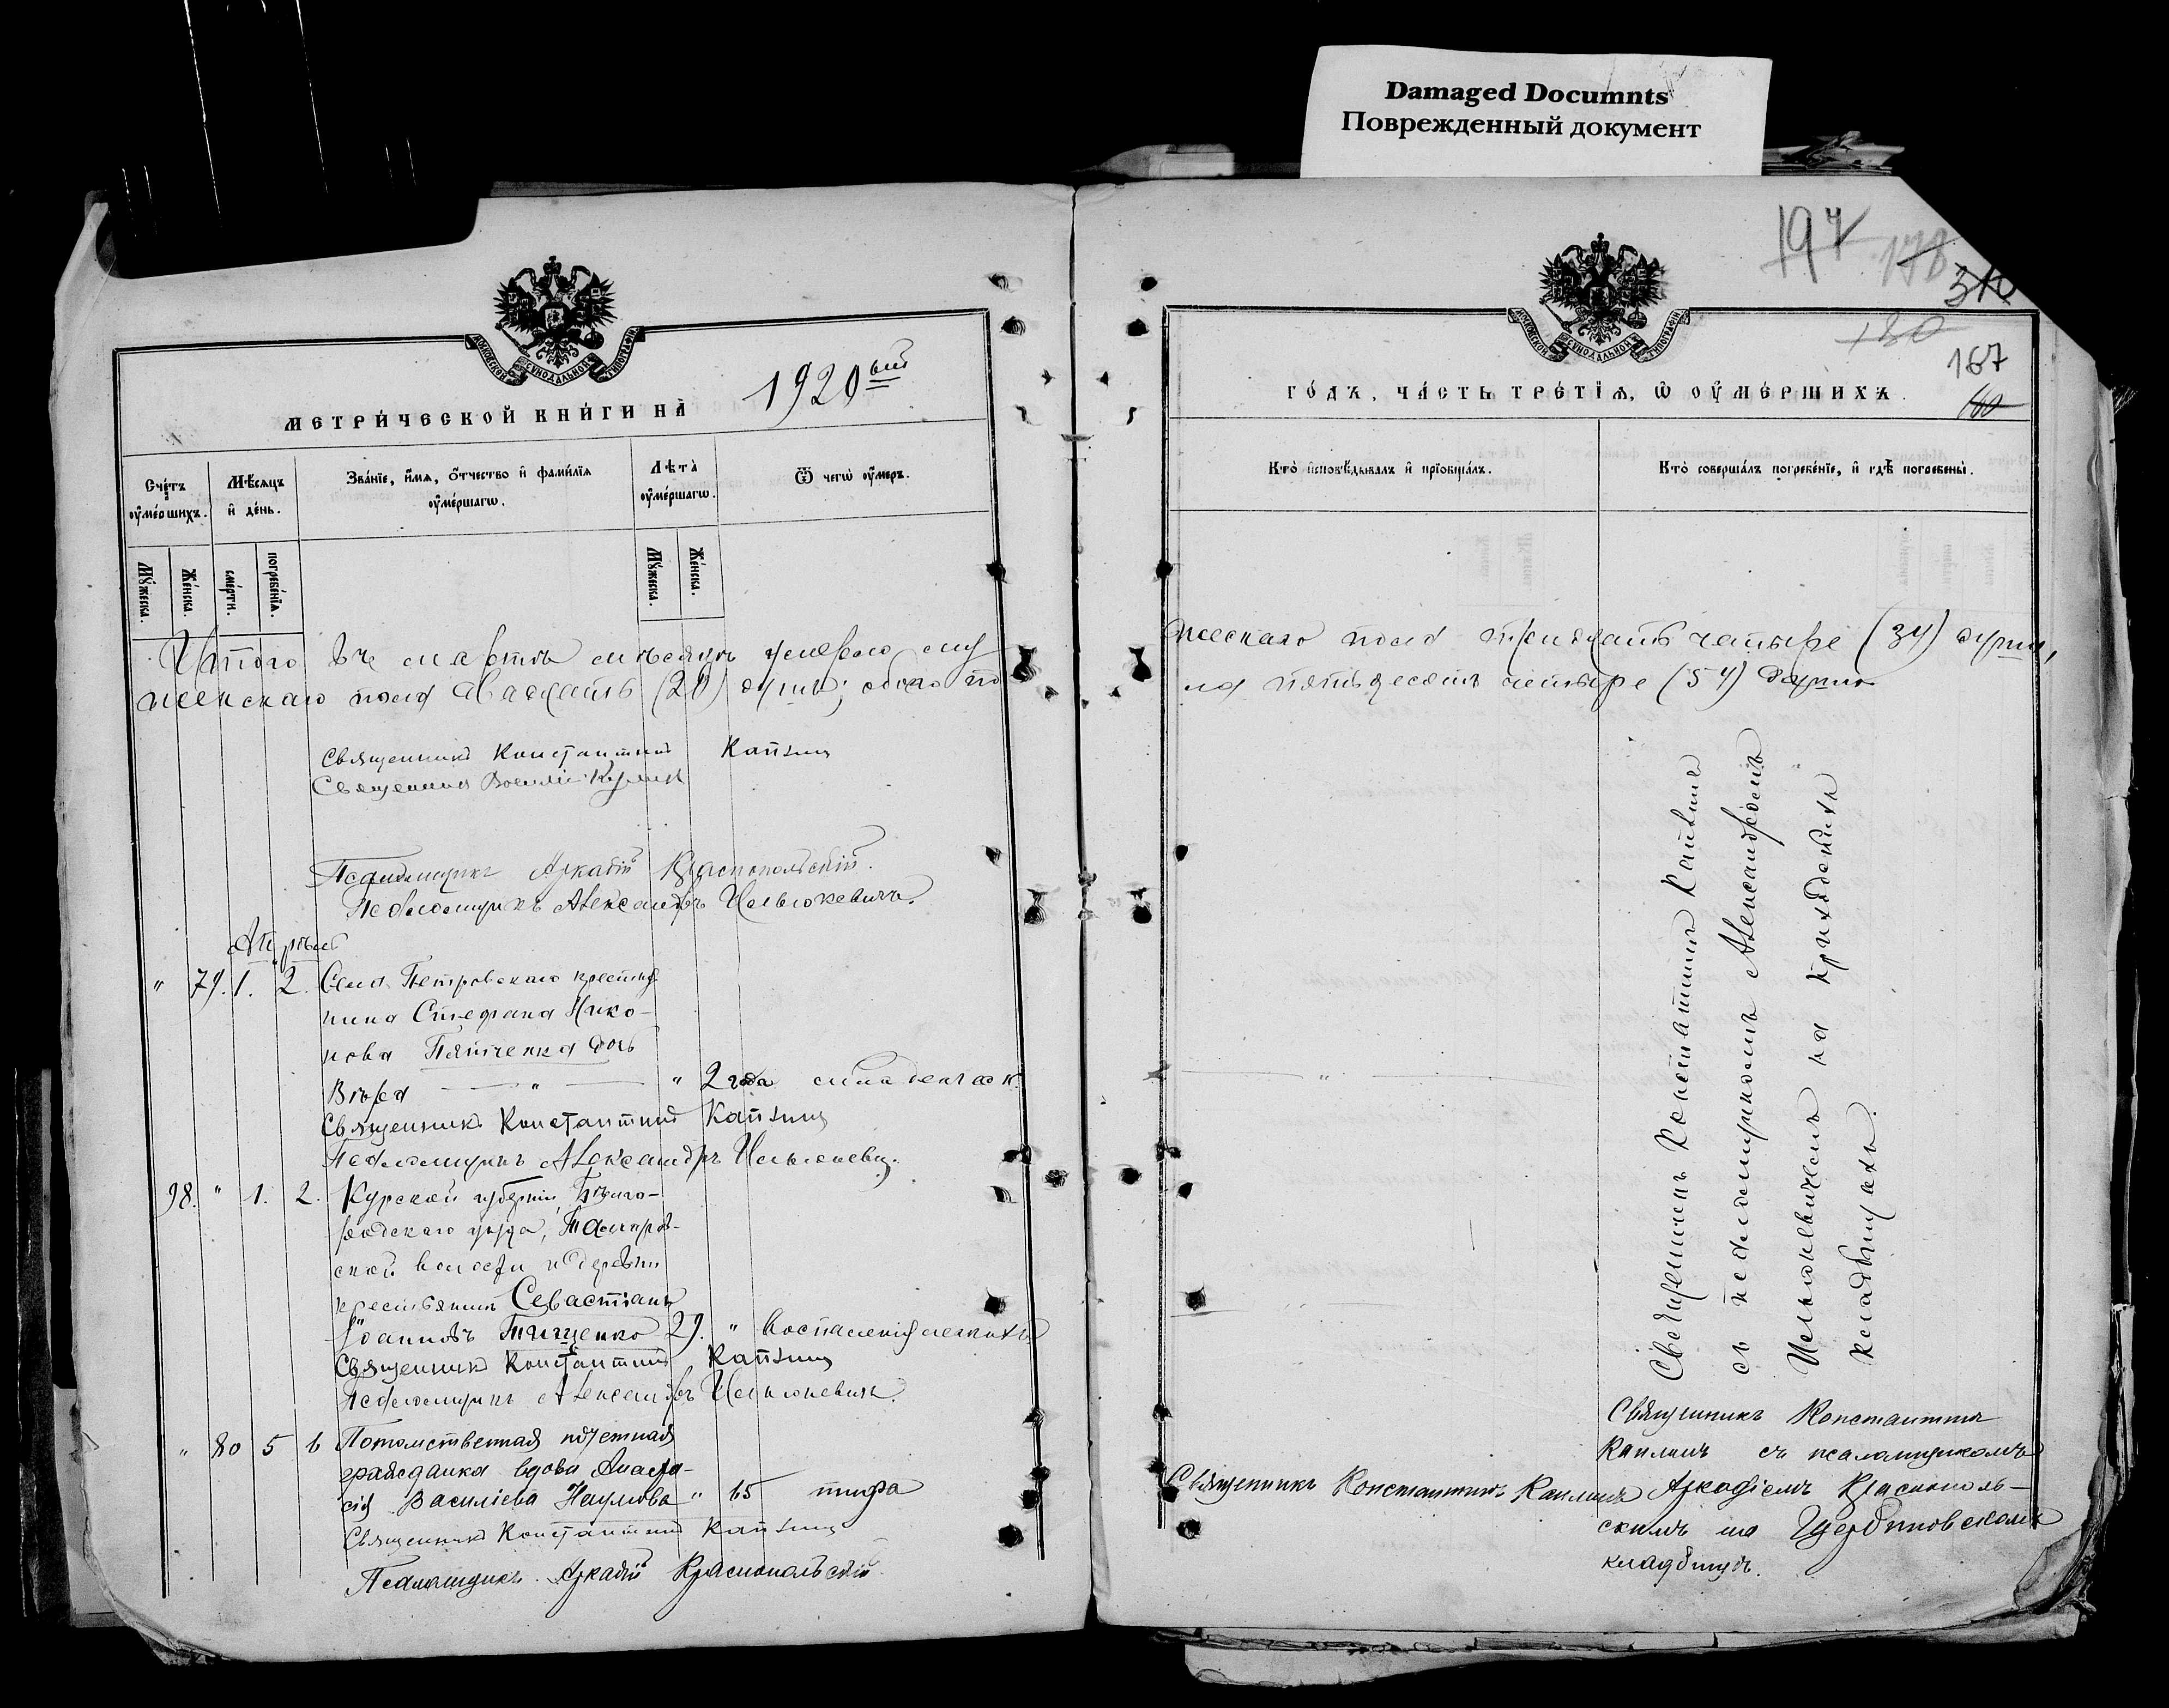 Damaged Documnts
Поврежденный документ
197
178
310
180
167
160
МОСКОВСКОЙ СѴНОДАЛЬНОЙ ТИПОГРАФІИ
МЕТРИ́ЧЕСКОЙ КНИ́ГИ НА̀ 1920ый
Сче́тъ ᲂу҆ме́ршихъ.
Мѣ́сяцъ и҆ де́нь.
Зва́нїе, и҆́мѧ, ѻ҆́тчество и҆ фами́лїѧ ᲂу҆ме́ршагѡ.
Лѣ́та ᲂу҆ме́ршагѡ.
Ѿ чегѡ̀ ᲂу҆́меръ.
Мꙋ́жеска.
Же́нска.
сме́рти.
погребе́нїѧ.
Мꙋ́жеска.
Же́нска.
Итого въ мартѣ мѣсяцѣ умерло му
женскаго пола двадцать (20) душъ; обоего по
Священникъ Константинъ Каплинъ
Священникъ Василій
Псаломщикъ Аркадій Краснопольскій.
Псаломщикъ Александръ Ильюкевичъ.
Апрѣль
" 79. 1. 2. Села Петровскаго крестья
нина Стефана Нико-
нова Пятченка дочь
Вѣра — " — " 2 года
Священникъ Константинъ Каплинъ
Псаломщикъ Александръ Ильюкевич.
98. " 1. 2. Курской губерніи, Бѣлго-
родскаго уѣзда,
ской волости и деревни
крестьянинъ Севастіанъ
Іоанновъ Тищенко 29. " воспаленія легкихъ
Священникъ Константинъ Каплинъ
Псаломщикъ Александръ Ильюкевичъ.
" 80 5 6 Потомственная почетная
гражданка вдова Анаста-
сія Василіева Наумова " 65 тифа
Священникъ Константинъ Каплинъ
Псаломщикъ Аркадій Краснопольскій.
МОСКОВСКОЙ СѴНОДАЛЬНОЙ ТИПОГРАФІИ
ГО́ДЪ, ЧА́СТЬ ТРЕ́ТЇѦ, Ѡ҆ ОУ҆МЕ́РШИХЪ.
Кто̀ и҆сповѣ́дывалъ и҆ прїѡбща́лъ.
Кто̀ соверша́лъ погребе́нїе, и҆ гдѣ̀ погребены̀.
жескаго пола тридцать четыре (34) души,
ла пятьдесятъ четыре (54) души
Священникъ Константинъ Каплинъ
съ псаломщикомъ Александромъ
Ильюкевичемъ на приходскихъ
кладбищахъ.
Священникъ Константинъ Каплинъ
Священникъ Константинъ
Каплинъ съ псаломщикомъ
Аркадіемъ Краснополь-
скимъ на Щербиновскомъ
кладбищѣ.